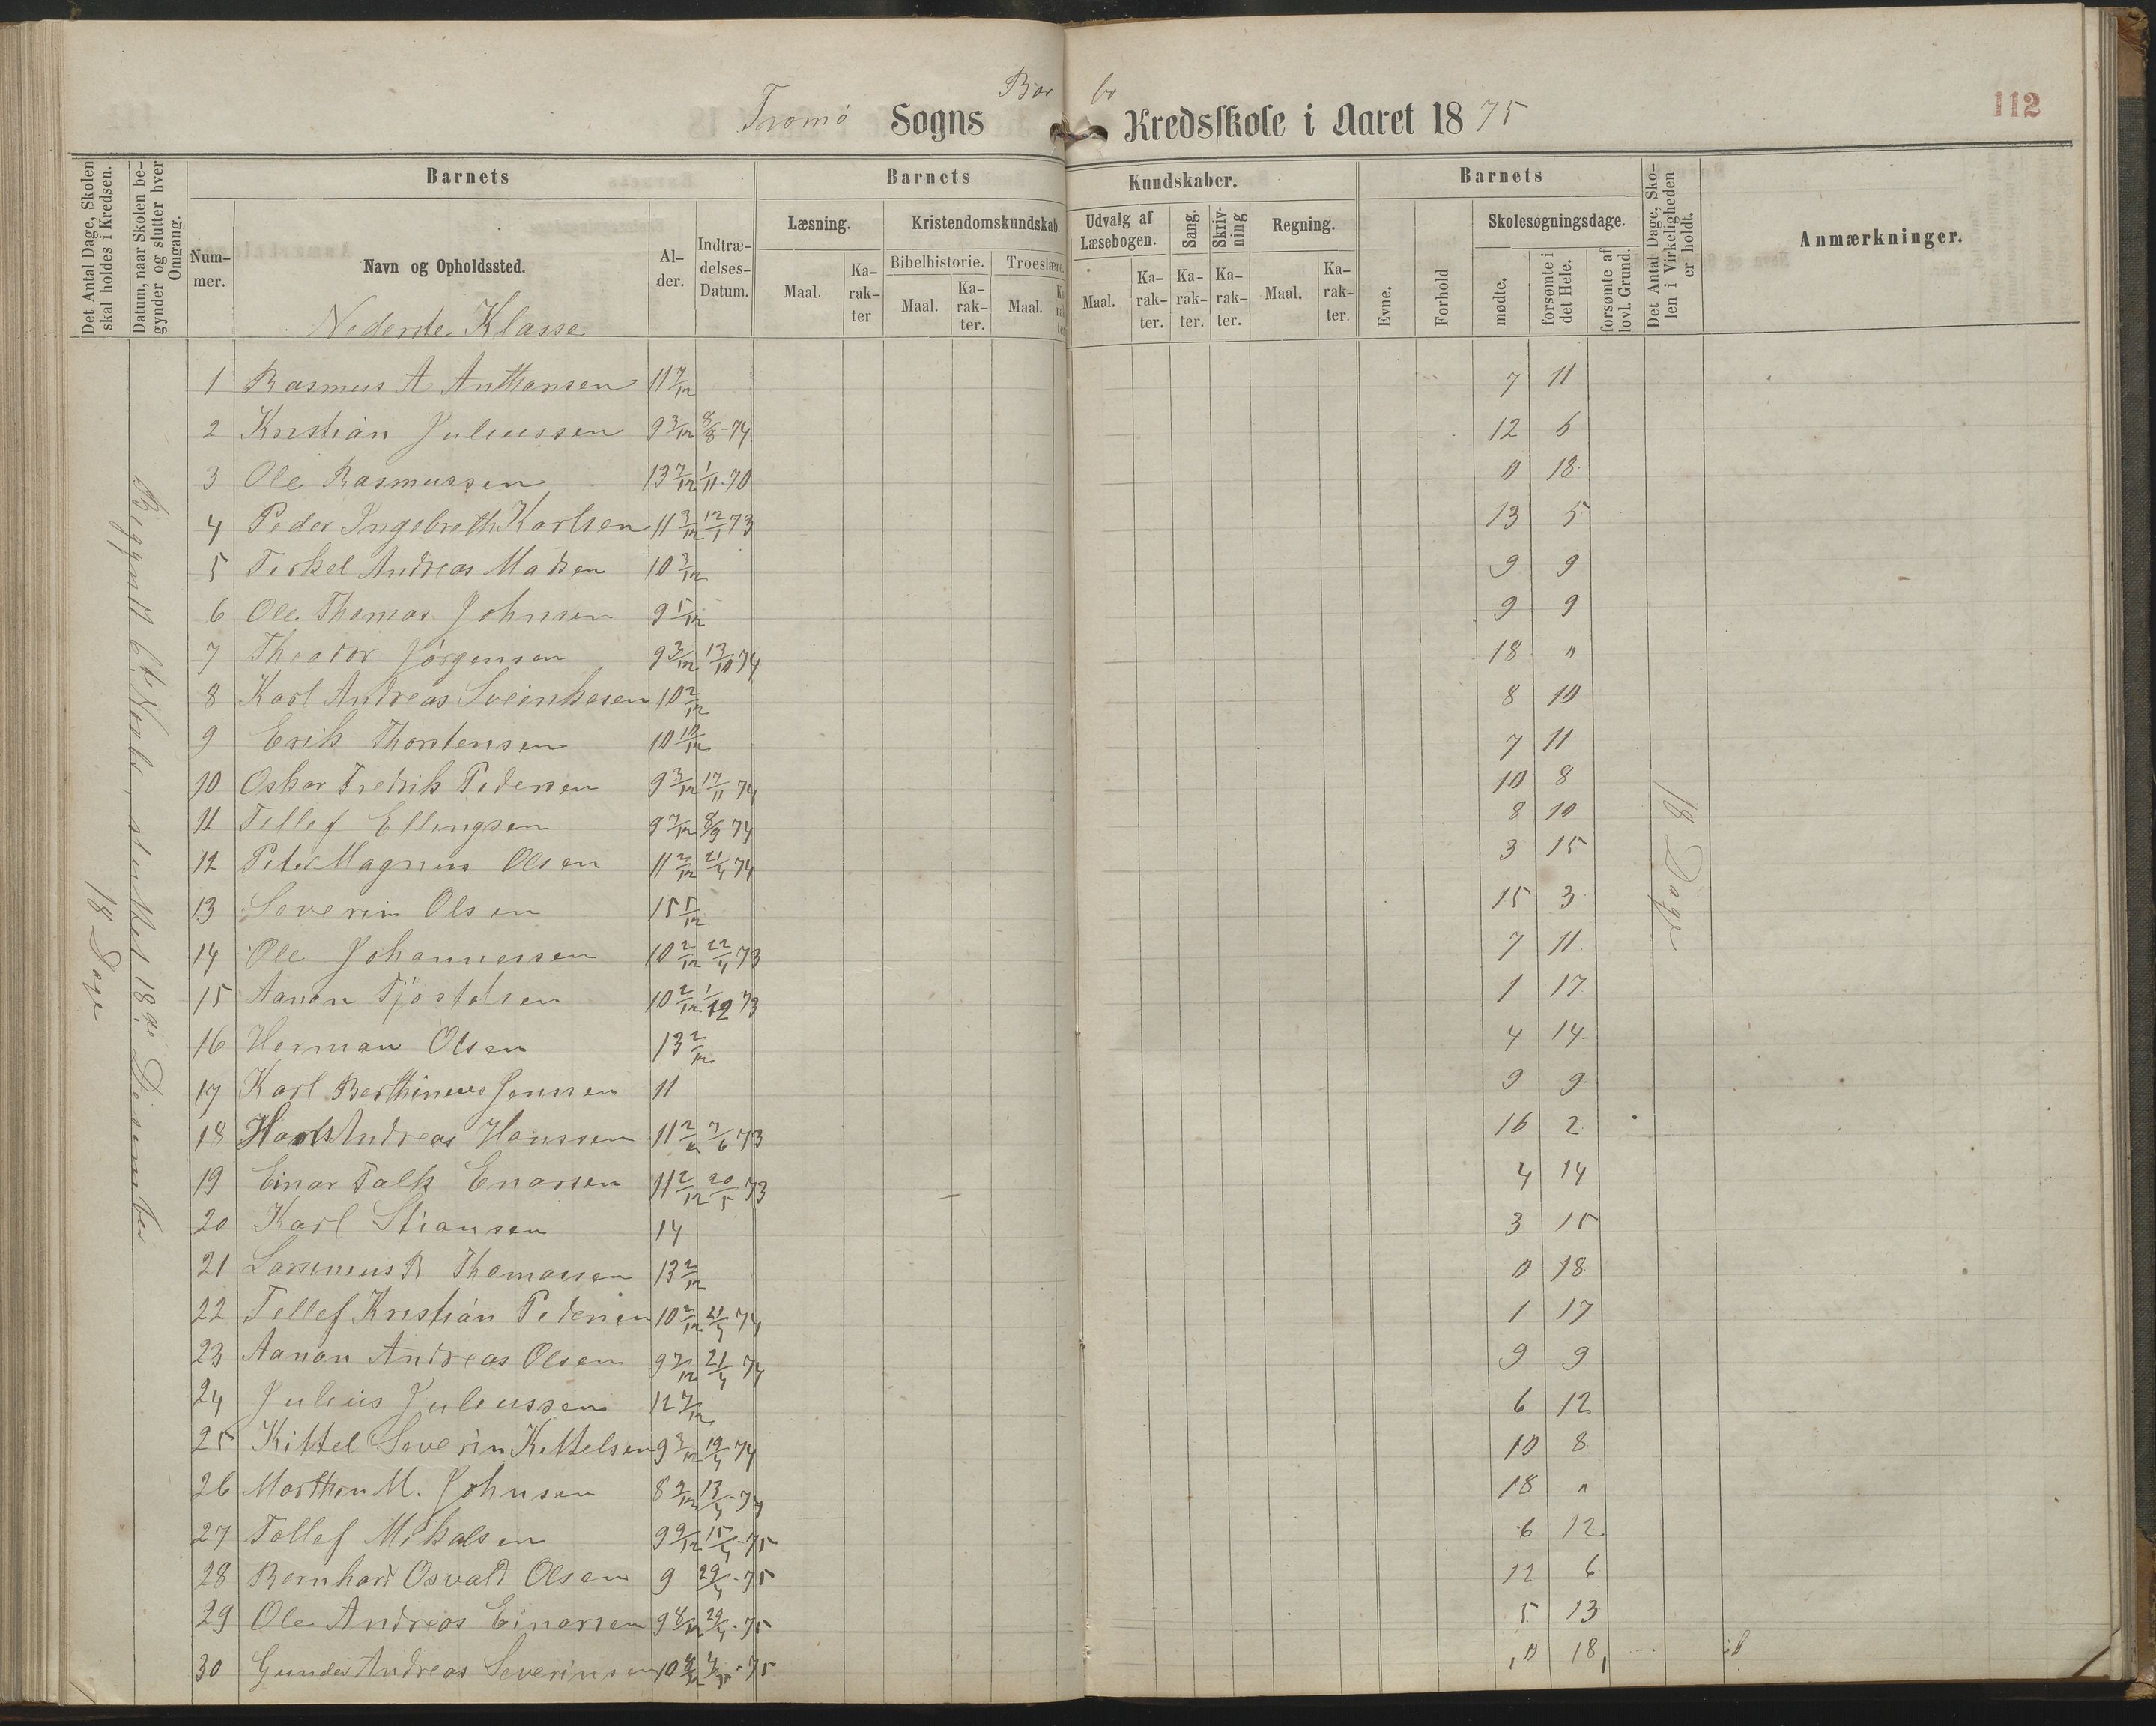 Tromø Sogns Bor bo Kredsskole i Aaret 1875
112
Det Antal Dage, Skolen skal holdes i Kredsen.
Datum, naar Skolen begynder og slutter hver Omgang.
Barnets
Nummer.
Navn og Opholdssted.
Alder.
Indtrædelses-Datum.
Barnets Kundskaber.
Læsning.
Maal.
Karakter
Kristendomskundskab.
Bibelhistorie.
Maal.
Karakter.
Troeslære.
Maal.
Udvalg af Læsebogen.
Maal.
Karakter.
Sang.
Karakter.
Skrivning
Karakter.
Regning.
Maal.
Karakter.
Barnets
Evne.
Forhold
Skolesøgningsdage.
mødte.
forsømte i det Hele.
forsømte af lovl. Grund.
Det Antal Dage, Skolen i Virkeligheden er holdt.
Anmærkninger.
Nederste Klasse
1 Rasmus A Anthonsen 11 7/12 7 11
2 Kristian Juliussen 9 3/12 8/8-74 12 6
3 Ole Rasmussen 13 7/12 1/11-70 0 18
4 Peder Ingebreth Karlsen 11 3/12 12/1 73 13 5
5 Terkel Andreas Madsen 10 3/12 9 9
6 Ole Thomas Johnsen 9 5/12 9 9
7 Theodor Jørgensen 9 3/12 13/10 74 18 "
8 Karl Andreas 10 2/12 8 10
9 Erik Thorstensen 10 10/12 7 11
10 Oskar Fredrik Pedersen 9 3/12 17/11 74 10 8
11 Tellef Ellingsen 9 7/12 8/9 74 8 10
12 Peter Magnus Olsen 11 2/12 21/4 74 3 15
13 Severin Olsen 15 5/12 15 3
14 Ole Johannessen 10 2/12 22/4 73 7 11
15 Aanon Tjostolsen 10 2/12 1/12 73 1 17
16 Herman Olsen 13 2/12 4 14
17 Karl Berthineus Jenssen 11 9 9
18 Hans Andreas Hanssen 11 7/6 73 16 2
19 Einar Falk Enarsen 11 2/12 20/5 73 4 14
20 Karl Stiansen 14 3 15
21 R Thomassen 13 2/12 0 18
22 Tellef Kristian Pedersen 10 2/12 21/4 74 1 17
23 Aanon Andreas Olsen 9 7/12 21/4 74 9 9
24 Julius Juliussen 12 7/12 6 12
25 Kittel Severin Kittelsen 9 3/12 19/4 74 10 8
26 Morthen M. Johnsen 8 9/12 13/4-74 18 "
27 Tollef Mikalsen 9 9/12 15/4-75 6 12
28 Bernhard Osvald Olsen 9 29/4-75 12 6
29 Ole Andreas Einarsen 9 8/12 29/4-75 5 13
30 Gunder Andreas Severinsen 10 75 0 18
18 Dage
Begyndt 6te Novbr, sluttet 18de Desember
18 Dage